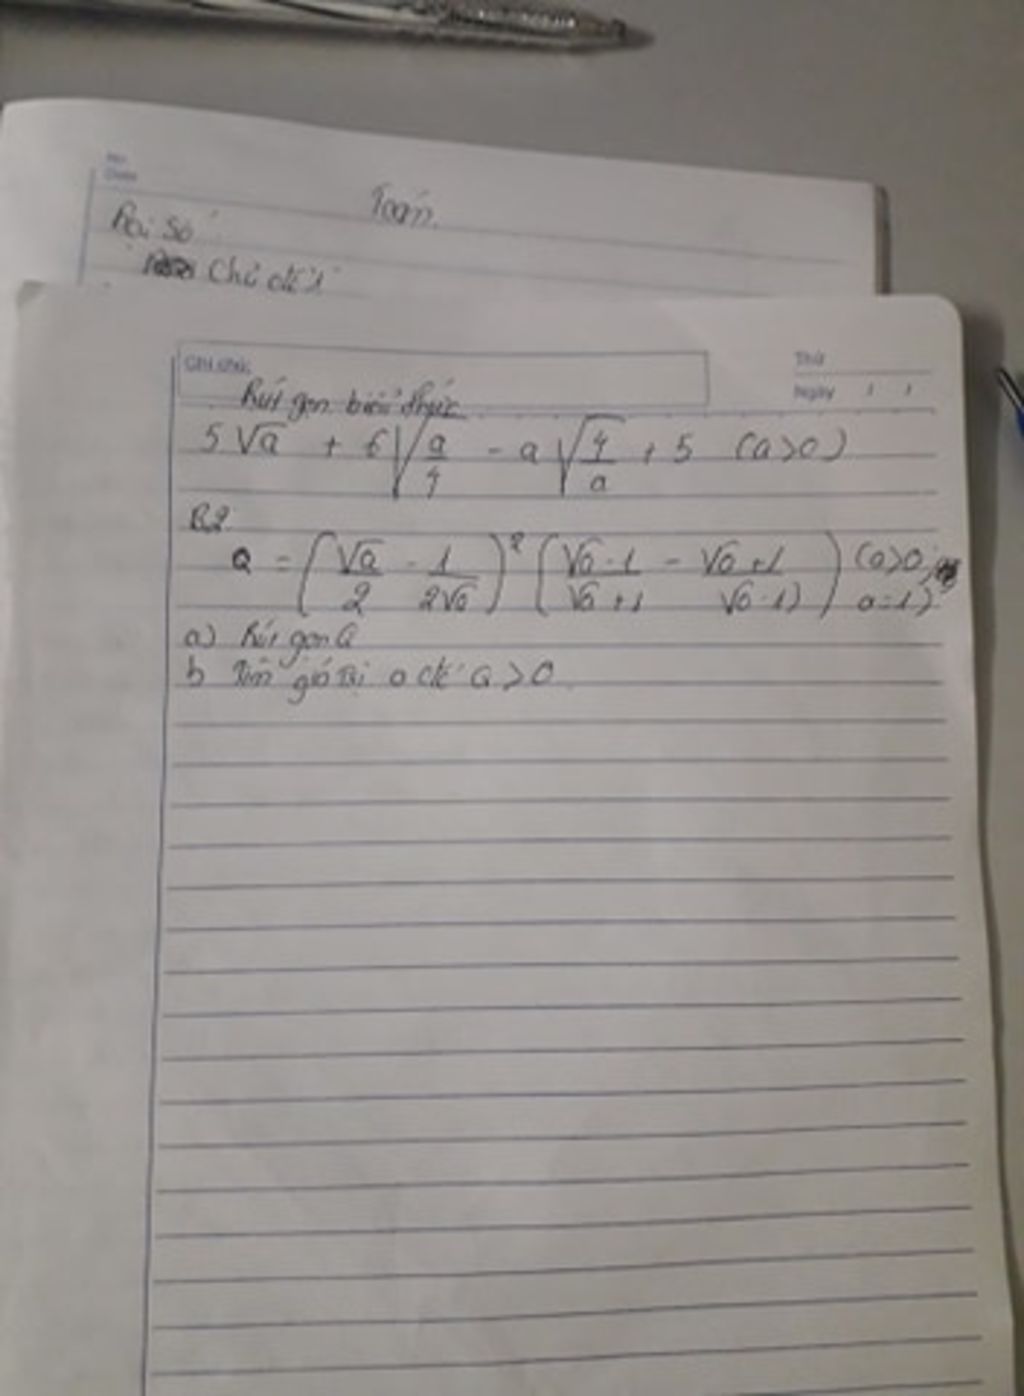 No.
Date
Toán
Đại Số
Chủ đề 1
Ghi chú:
Thứ
Ngày / /
Rút gọn biểu thức
5√a + 6√(a/4) - a√(4/a) + 5 (a>0)
B2
Q = (√a/2 - 1/2√a)² (√a-1/√a+1 - √a+1/√a-1) (a>0; a=1)
a) Rút gọn Q
b Tìm giá trị a để Q > 0